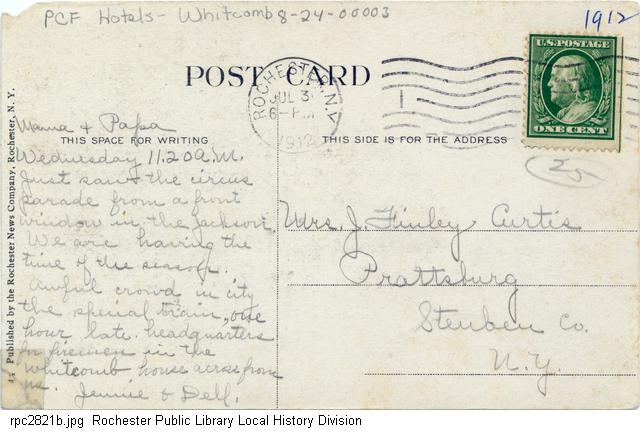 PCF Hotels - Whitcomb 8-24-00003
1912
U.S. POSTAGE
ONE CENT
POST CARD
ROCHESTER, N.Y.
JUL 3
6-PM
1912
THIS SPACE FOR WRITING
THIS SIDE IS FOR THE ADDRESS
25
Mama & Papa
Wednesday 11.20 A.M.
Just saw the circus
parade from a front
window in the Jackson.
We are having the
time of the season.
Awful crowd in city
the special train, one
hour late. headquarters
for firemen in the
Whitcomb house across from
us. Jennie & Dell.
Mrs. J. Finley Curtis
Prattsburg
Steuben Co.
N.Y.
Published by the Rochester News Company, Rochester, N. Y.
rpc2821b.jpg Rochester Public Library Local History Division